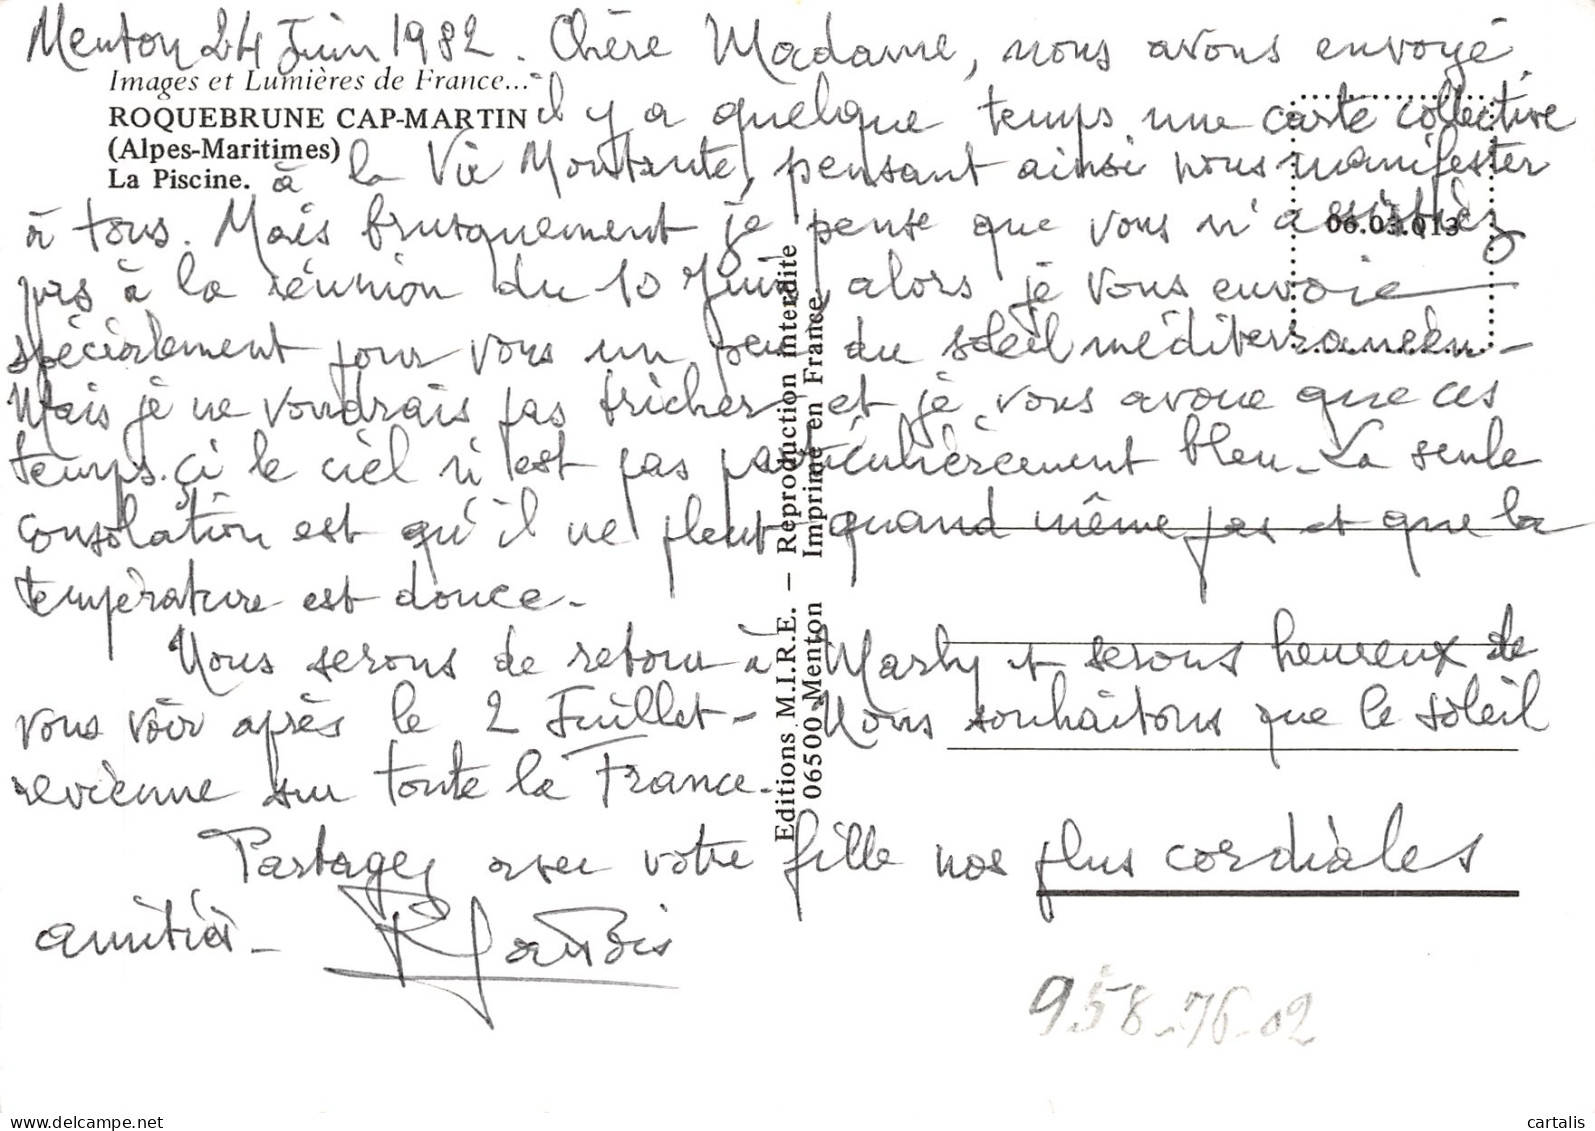 Menton 24 Juin 1982. Chère Madame, nous avons envoyé
Images et Lumières de France...
il y a quelque temps une carte collective
ROQUEBRUNE CAP-MARTIN
(Alpes-Maritimes)
La Piscine.
à la Vie Montante, pensant ainsi nous manifester
à tous. Mais brusquement je pense que vous n'assistiez
06.03.013
pas à la réunion du 10 Juin, alors je vous envoie
spécialement pour vous un peu du soleil méditerranéen -
Mais je ne voudrais pas tricher et je vous avoue que ces
temps.çi le ciel n'est pas particulièrement bleu - La seule
consolation est qu'il ne pleut quand même pas et que la
température est douce -
Nous serons de retour à Marly et serons heureux de
vous voir après le 2 Juillet - Nous souhaitons que le soleil
revienne sur toute la France -
Partagez avec votre fille nos plus cordiales
amitiés -
Editions M.I.R.E. — Reproduction interdite
06500 Menton Imprimé en France
958-76-02
www.delcampe.net
cartalis